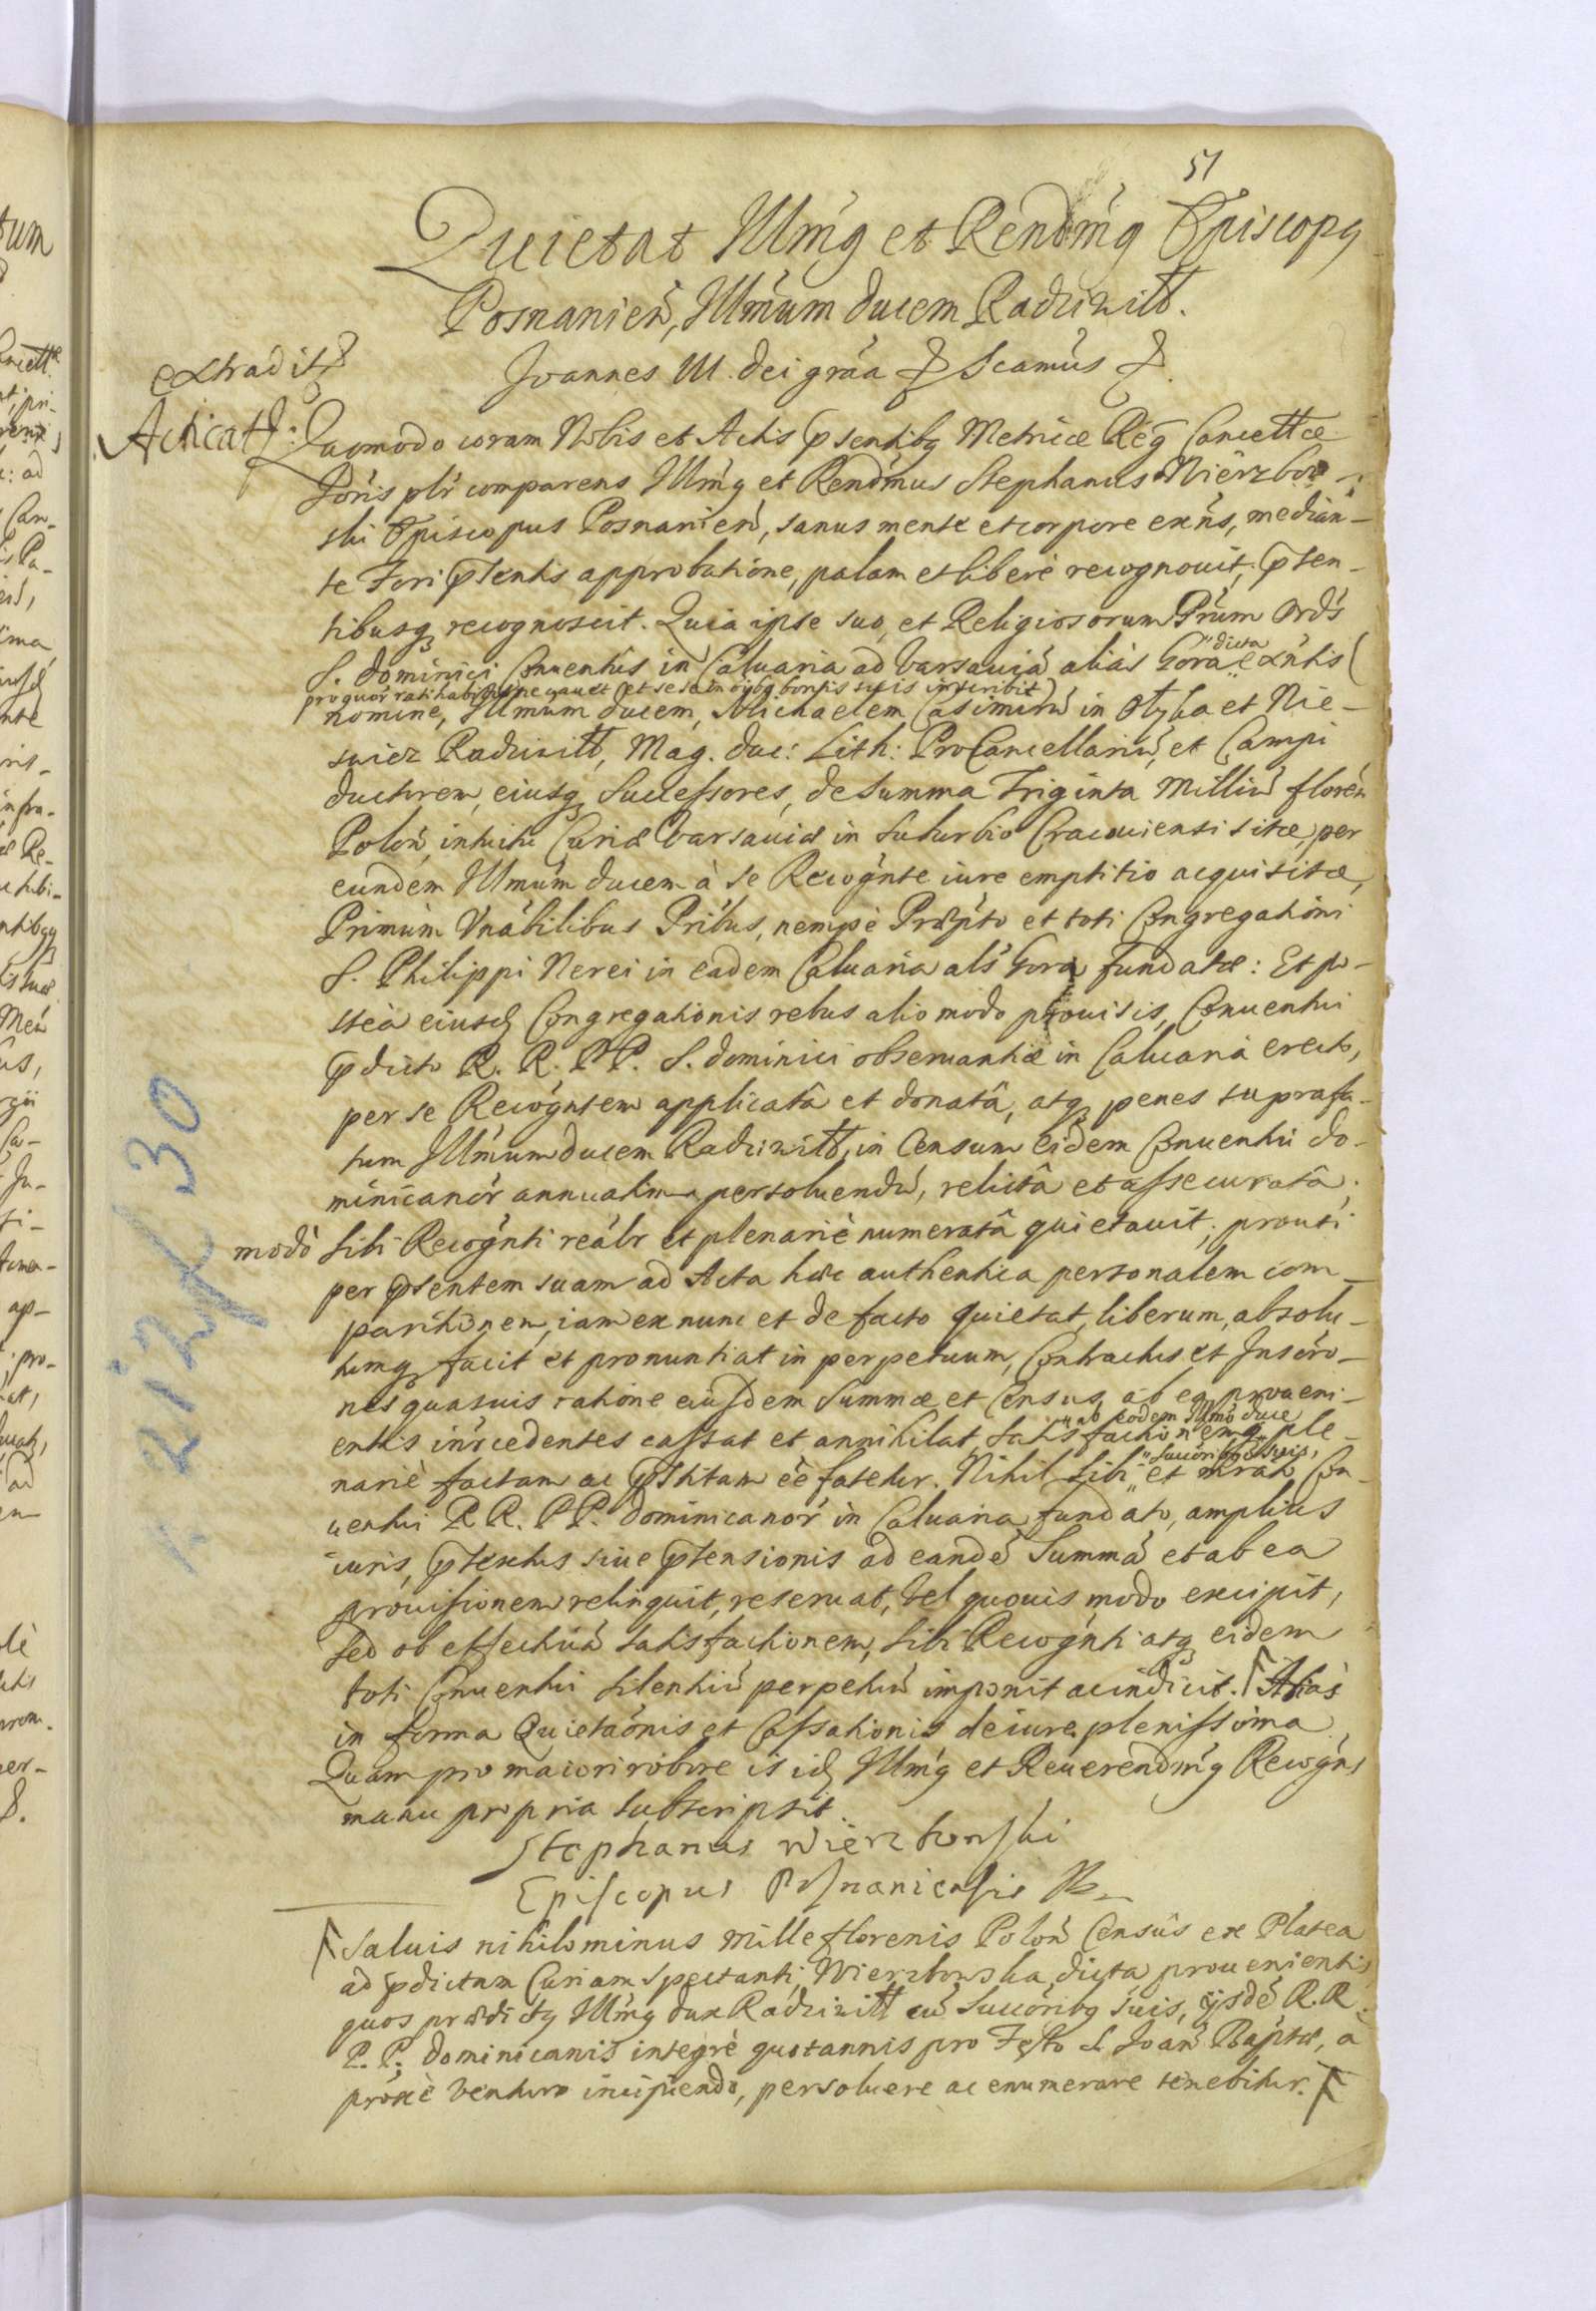 51
Quietat Illmg et Rendmg Episcopg
Posnanień, Illmum ducem Radziwiłł.
Joannes III. dei gráa & Scamús &
Extradit&
Acticat&: Quomodo coram Nobis et Actis pſentibg Metricæ Reg Cancellæ
Pöris plr comparens Illmg et Rendmus Stephanus Wierzbow-
ski Episcopus Posnanień, sanus mente et corpore exñs, median-
te Fori pſentis approbatione, palam et liberè recognouit, pſen-
tibusq recognoscit. Quia ipse suo, et Religiosorum Prum Ords
S. dominici Conuentûs in Caluaria ad Varsauiá aliàs Gora "dicta" exñtis (
pro quor ratihabitione cauet et se se in oibg bonis suis inscribit)
nomine, Illmum ducem, Michaelem Casimirũ in Ołyka et Nie-
swiez Radziwiłł, Mag. duc: Lith: ProCancellariũ, et Campi
ductorem, eiusq Succeſsores, de Summa Triginta Milliũ floreń
Poloń, intuitu Curiæ Varsauiæ in Suburbio Cracouiensi sitæ, per
eundem Illmum ducem à se Recognte iure emptitio acquisitæ,
Primùm Vnábilibus Pribus, nempè Præpto et toti Congregationi
S. Philippi Nerei in eadem Caluaria als Gora fundatæ: Et po-
steà eiusd Congregationis rebus alio modo prouisis, Conuentui
pdicto R. R. P P. S. dominici obseruantiæ in Caluaria erecto,
per se Recogntem applicatâ et donatâ, atq penes suprafa-
tum Illmum ducem Radziwiłł, in Censum eidem Conuentui do-
minicanor annuatim persoluendũ, relictâ et aſsecuratâ;
modò sibi Recognti reálr et plenariè numeratâ quietauit, prouti
per pſentem suam ad Acta hæc authentica personalem com-
paritionem, iam ex nunc et de facto quietat, liberum, absolu-
tumq facit et pronuntiat in perpetuum, Contractus et Inscrö-
nes quasuis ratione eiusdem Summæ et Census, ab ea proueni-
entis incedentes caſsat et annihilat, Satisfactionemq "ab eodem Illmo duce" ple-
nariè factam ac pſtitam eê fatetur. Nihil sibi "Succöribg suis," et mrato Con-
uentui R R. P P. Dominicanor in Caluaria fundato, amplius
iuris, ptextus siue ptensionis ad eandé Summá et ab ea
prouiſionem relinquit, reseruat, vel quouis modo excipit,
sed ob effectiuá satisfactionem, sibi Recognti atq eidem
toti Conuentui silentiũ perpetuũ imponit ac indicit. Aliàs
in forma Quietaõnis et Caſsationis de iure pleniſsima
Quam pro maiori robore is id Illmg et Reuerendmg Recogñs
manu propria subscripsit.
Stephanus Wierzbowski
Episcopus Posnaniensis
Saluis nihilominus mille florenis Poloń Censûs ex Platea
ad pdictam Curiam Spectanti, Wierzbowska dicta prouenientis
quos prædictg Illmg dux Radziwiłł cũ Succöribg suis, ijsdé R. R.
P. P. Dominicanis integrè quotannis pro Festo S. Joań Baptæ, à
proxè venturo incipiendo, persoluere ac enumerare tenebitur.